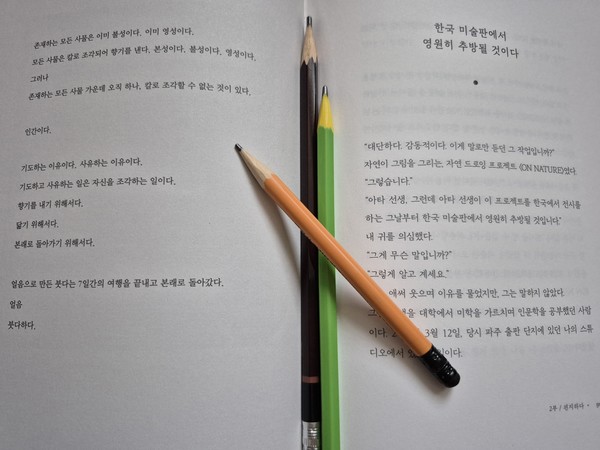 존재하는 모든 사물은 이미 불성이다. 이미 영성이다.
모든 사물은 칼로 조각되어 향기를 낸다. 본성이다. 불성이다. 영성이다.
그러나
존재하는 모든 사물 가운데 오직 하나, 칼로 조각할 수 없는 것이 있다.
인간이다.
기도하는 이유이다. 사유하는 이유이다.
기도하고 사유하는 일은 자신을 조각하는 일이다.
향기를 내기 위해서다.
닮기 위해서다.
본래로 돌아가기 위해서다.
얼음으로 만든 붓다는 7일간의 여행을 끝내고 본래로 돌아갔다.
얼음
붓다하다.
한국 미술판에서
영원히 추방될 것이다
“대단하다. 감동적이다. 이게 말로만 듣던 그 작업입니까?”
자연이 그림을 그리는, 자연 드로잉 프로젝트 〈ON NATURE〉였다.
“그렇습니다.”
“아타 선생, 그런데 아타 선생이 이 프로젝트를 한국에서 전시를
하는 그날부터 한국 미술판에서 영원히 추방될 것입니다.”
내 귀를 의심했다.
“그게 무슨 말입니까?”
“그렇게 알고 계세요.”
애써 웃으며 이유를 물었지만, 그는 말하지 않았다.
그 대학에서 미학을 가르치며 인문학을 공부했던 사람
이다. 3월 12일, 당시 파주 출판 단지에 있던 나의 스튜
디오에서
2부 / 편지하다 •